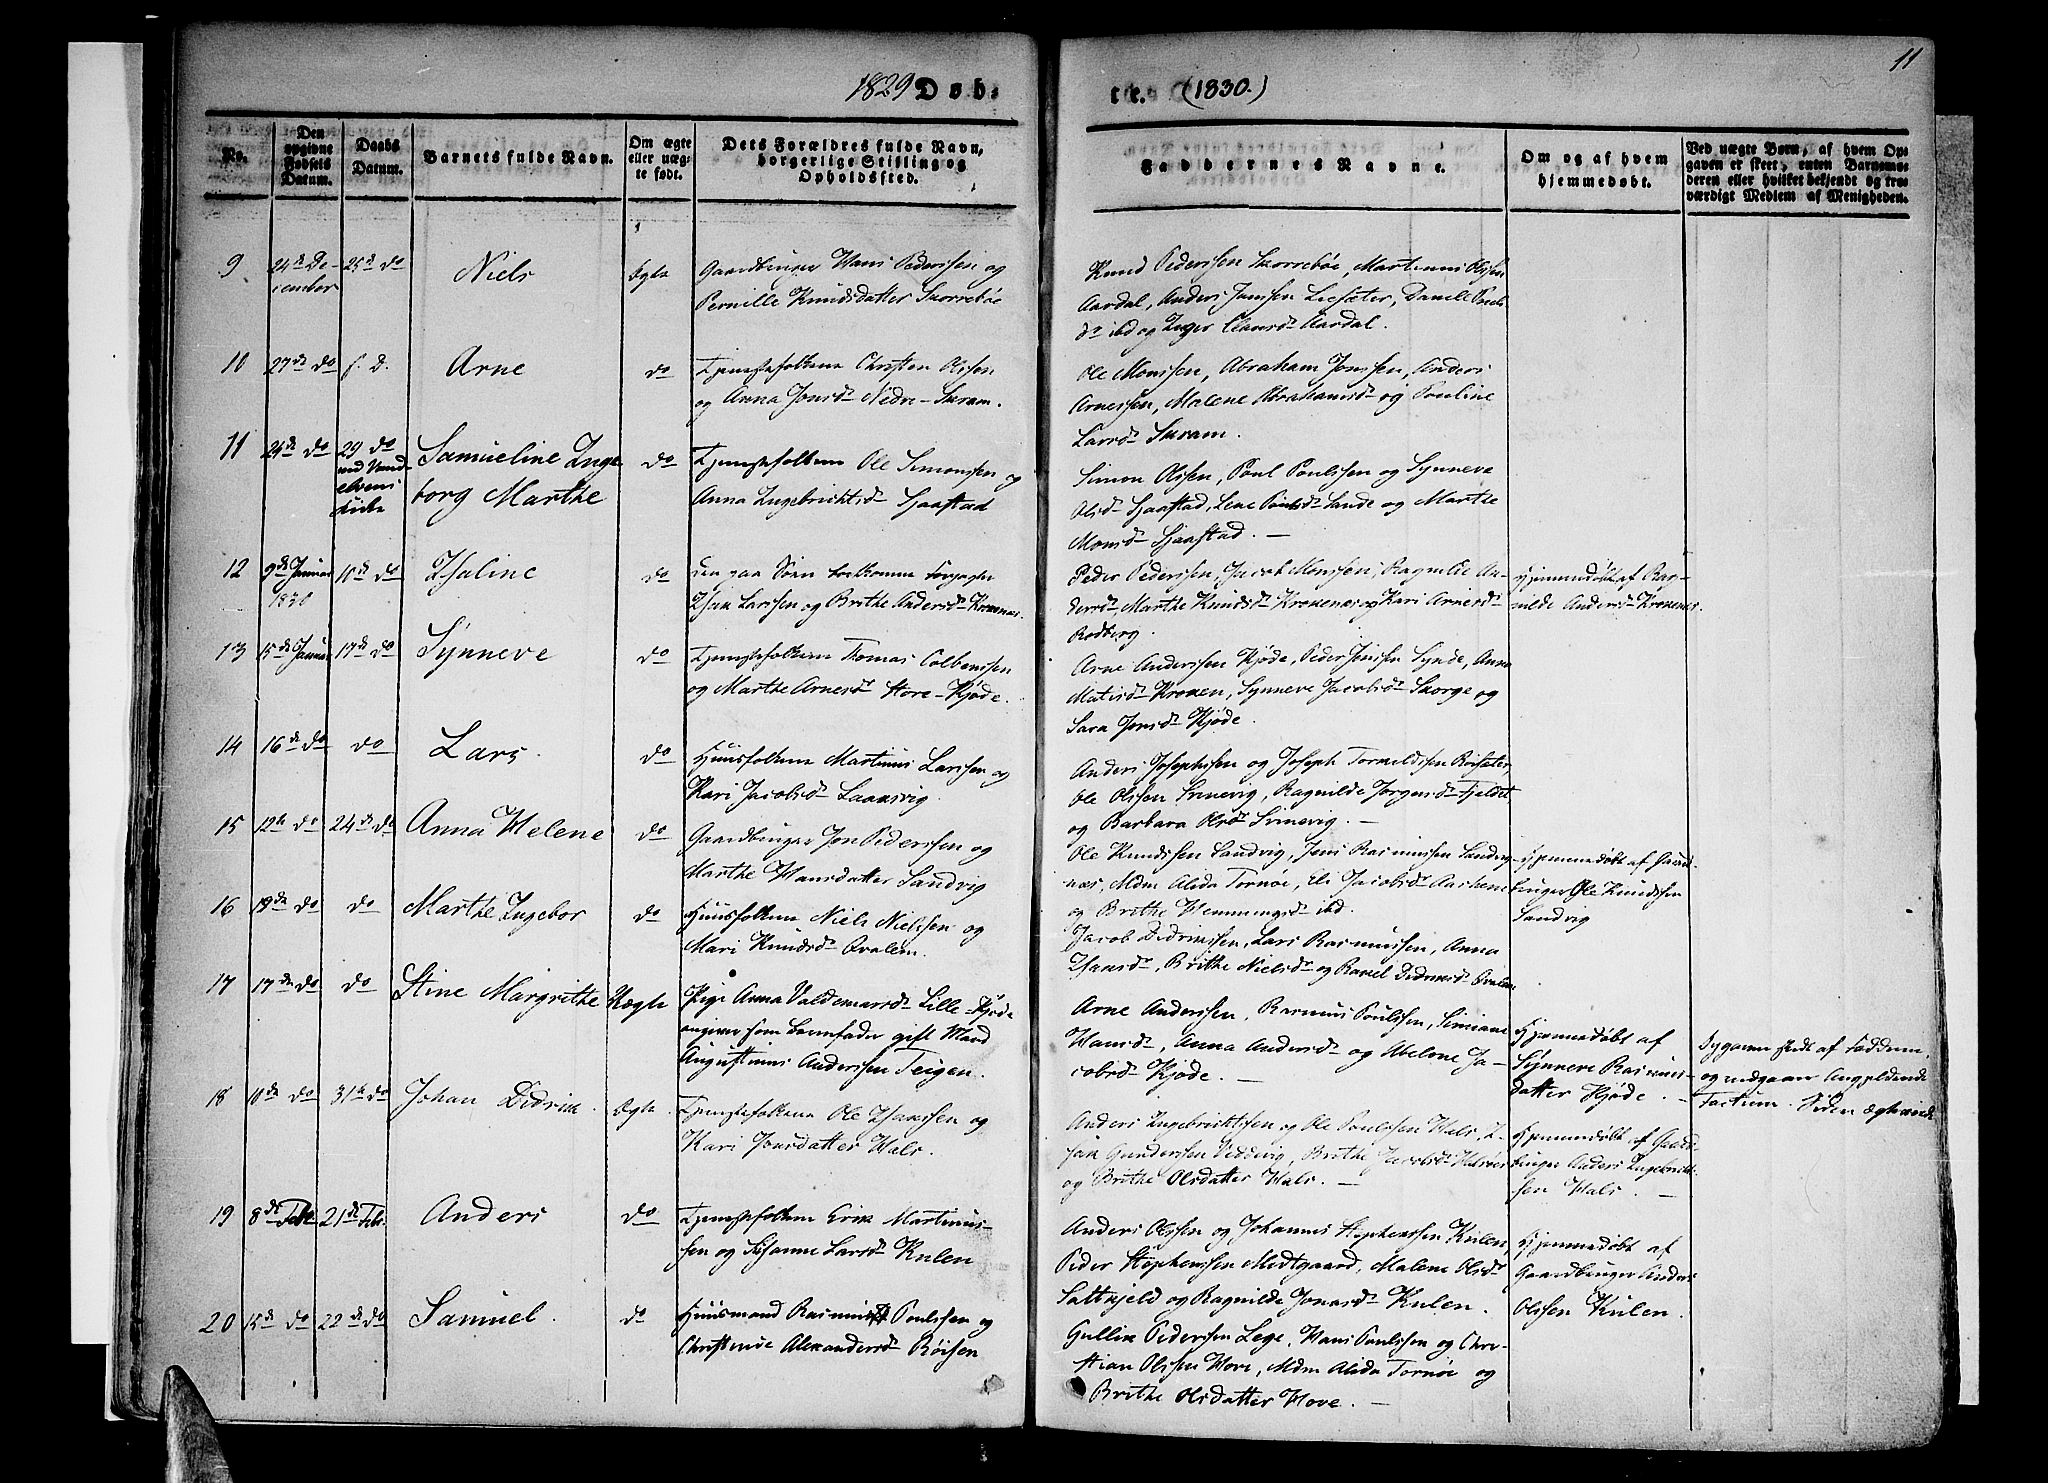 11
1829 Døb-
te. (1830.)
No.
Den opgivne Fødsels Datum.
Daabs Datum.
Barnets fulde Navn.
Om ægte eller uægte født.
Dets Forældres fulde Navn, borgerlige Stilling og Opholdsted.
Faddernes Navne.
Om og af hvem hjemmedøbt.
Ved uægte Børn, af hvem Opgaven er skeet, enten Barnemoderen eller hvilket bekjendt og troværdigt Medlem af Menigheden.
9
24de De-
cember
25de do
Niels
Ægte
Gaardbruger Hans Pederssen og
Pernille Knudsdatter Skorrebøe
Knud Pederssen Skorrebøe, Martinus Olssen
Aardal, Anders Janssen Liesæter, Danele Pouls-
dr ibd og Inger Clausdr Aardal.
10
27de do
f. D.
Arne
do
Tjenestefolkene Christen Olssen
og Anna Jonsdr Nedre-Skram.
Ole Monssen, Abraham Jonssen, Anders
Arnessen, Malene Abrahamsdr og Pouline
Larsdr Skram.
11
24de do
29 do
ved Vand-
elvens
Kirke
Samueline Inge
borg Marthe
do
Tjenestefolkene Ole Simonssen og
Anna Ingebrichtsdr Sjaastad
Simon Olssen, Poul Poulssen og Synneve
Olsdr Sjaastad, Lene Poulsdr Sande og Marthe
Monsdr Sjaastad. —
12
9de Januar
1830
10de do
Isaline
do
Isak Larssen og Brithe Andersdr Kroknæs.
Peder Pederssen, Jacob Monssen, Ragnilde An-
dersdr, Marthe Knudsdr Kroknæs og Kari Arnesdr
Rodberg.
Hjemmedøbt af Rag-
nilde Andersdr Kroknæs.
13
15de Januar
17de do
Synneve
do
Tjenestefolkene Thomas Colbenssen
og Marthe Arnesdr Store-Kjøde.
Arne Anderssen Kjøde, Peder Jenssen Synde, Anna
Matisdr Kroken, Synneve Jacobsdr Skorge og
Sara Jonsdr Kjøde.
14
16de do
do
Lars.
do
Huusfolkene Martinus Larssen og
Kari Jacobsdr Laanvig.
Anders Josephsen og Joseph Tormeldssen Reisæter,
Ole Olssen Svinevig, Ragnilde Jørgensdr Fjeldet
og Barbara Olsdr Svinevig. —
15
12te do
24de do
Anna Helene
do
Gaardbruger Jon Pederssen og
Marthe Hansdatter Sandvig
Ole Knudssen Sandvig, Jens Rasmussen Sandvig-
næs, Mdm Alida Tornøe, Eli Jacobsdr Aaskene
og Brithe Hemmingsdr ibd.
Hjemmedøbt af Gaard-
bruger Ole Knudssen
Sandvig
16
19de do
do
Marthe Ingebor
do
Huusfolkene Niels Nielssen og
Mari Knudsdr Qvalem.
Jacob Didrikssen, Lars Rasmussen, Anna
Isaksdr, Brithe Nielsdr og Rakel Didriksdr Qvalem
17
17de do
do
Stine Margrithe
Uægte
Pige Anna Valdemarsdr Lille-Kjøde
angiver som Barnefader gift Mand
Augustinus Anderssen Teigen.
Arne Anderssen, Rasmus Poulssen, Simiane
Hansdr, Anna Andersdr og Abelone Ja-
cobsdr Kjøde. —
Hjemmedøbt af
Synneve Rasmus-
datter Kjøde. —
Opgaven skedt af Faddern.
og vedgaaen Angjeldende
Factum.
18
10de do
31te do
Johan Didrik.
Ægte.
Tjenestefolkene Ole Isakssen og
Kari Jonsdatter Hals.
Anders Ingebrichtssen og Ole Poulssen Hals, I-
sak Gunderssen Veddvig, Brithe Jacobsdr
og Brithe Olsdatter Hals. —
Hjemmedøbt af Gaard-
bruger Anders Ingebricht-
sen Hals. —
19
8de Febr
21de Febr.
Anders
do
Tjenestefolkene Erik Martinus-
sen og Susanne Larsdr Kulen
Anders Olssen og Johannes Stephenssen Kulen,
Peder Stephenssen Medtgaard, Malene Olsdr
Saltkjeld og Ragnilde Jonasdr Kulen.
Hjemmedøbt af
Gaardbruger Anders
Olssen Kulen.
20
15de do
22de do
Samuel.
do
Huusmand Rasmus Poulssen og
Christense Alexandersdr Røisen
Gullik Pederssen Lege, Hans Poulssen og Chri-
stian Olssen Hove, Mdm Alida Tornøe og
Brithe Olsdatter Hove. —